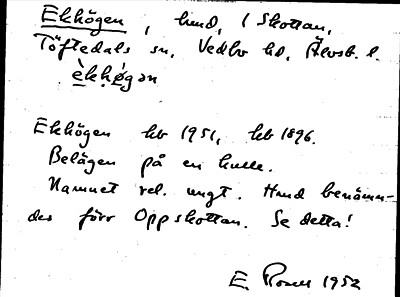 Ekhögen, hmd, i Skottan,
Töftedals sn, Vedbo hd, Älvsb. l.
èkhø̀gən
Ekhögen kb 1951, kb 1896.
Belägen på en kulle.
Namnet rel. ungt. Hmd benämn-
des förr Oppskottan. Se detta!
E. 1952